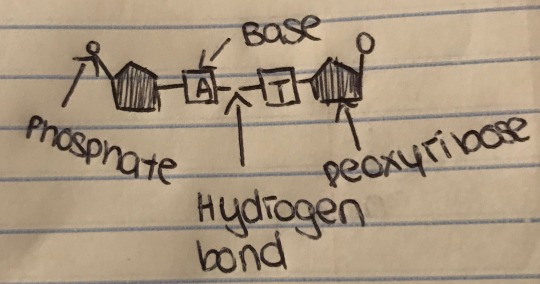 Base
A
T
Phosphate
Deoxyribose
Hydrogen
bond